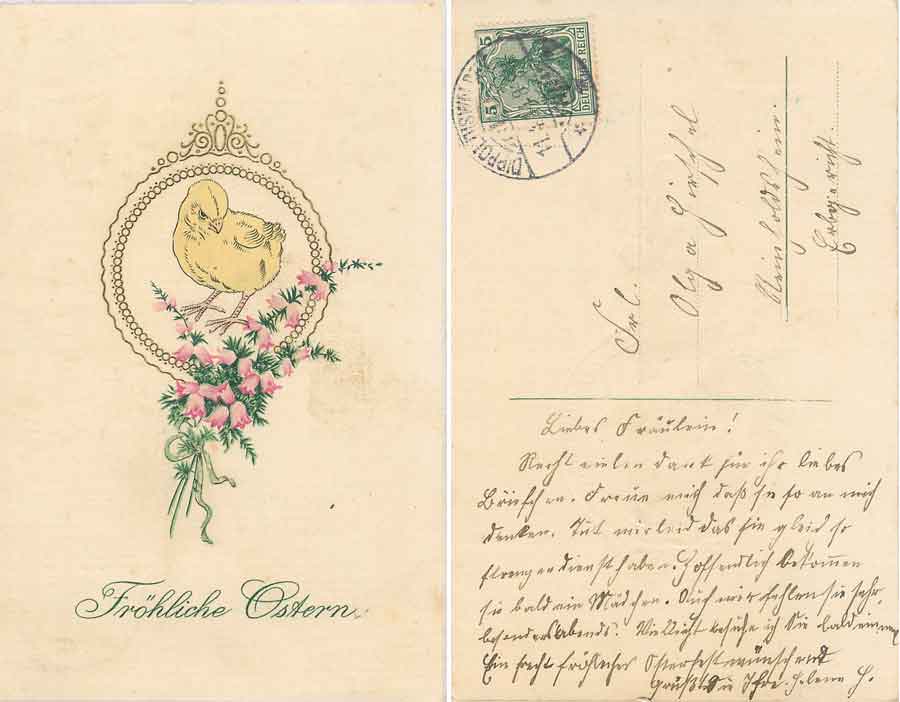 Fröhliche Ostern.
5 5
DEUTSCHES REICH
DIPPOLDISWALDE
11.4
Frl.
Olga
Reinholdshain.
Erbgericht.
Liebes Fräulein!
Recht vielen dank für ihr liebes
Briefchen. Freue mich daß sie so an mich
denken. Tut mir leid das sie gleich so
strengen dienst haben. Hoffendlich bekommen
sie bald ein Mädchen. Auch mir fehlen sie sehr,
besonders Abends. Vielleicht besuche ich Sie bald einmal
Ein recht fröhliches Osterfest wünschend
grüßt Sie Ihre Helene H.